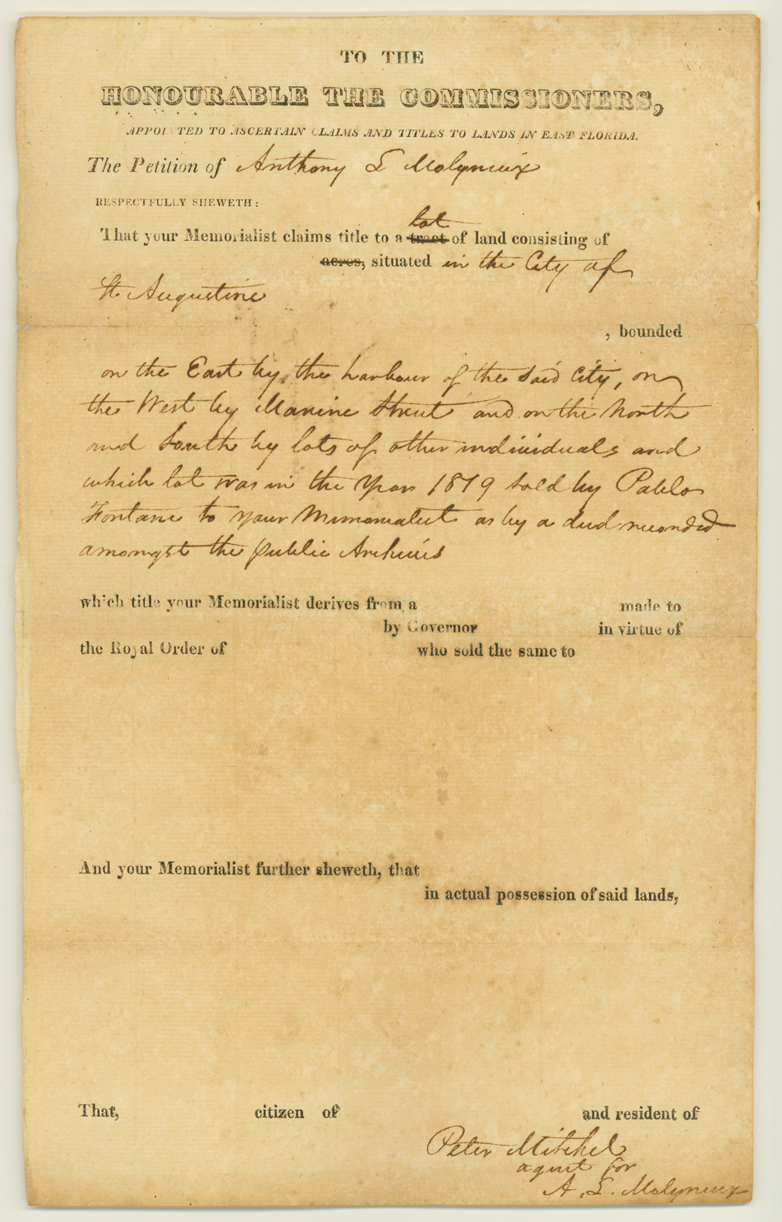 TO THE
HONOURABLE THE COMMISSIONERS,
APPOINTED TO ASCERTAIN CLAIMS AND TITLES TO LANDS IN EAST FLORIDA.
The Petition of Anthony L Molyneux
RESPECTFULLY SHEWETH:
lot
That your Memorialist claims title to a tract of land consisting of
acres, situated in the City of
St Augustine
, bounded
on the East by the harbour of the said City, on
the West by Marine Street and on the North
and South by lots of other individuals and
which lot was in the Year 1819 sold by Pablo
Fontane to your Memorialist as by a deed recorded
amongst the public Archives
which title your Memorialist derives from a made to
by Governor in virtue of
the Royal Order of who sold the same to
And your Memorialist further sheweth, that
in actual possession of said lands,
That, citizen of and resident of
Peter Mitchel
agent for
A. L. Molyneux